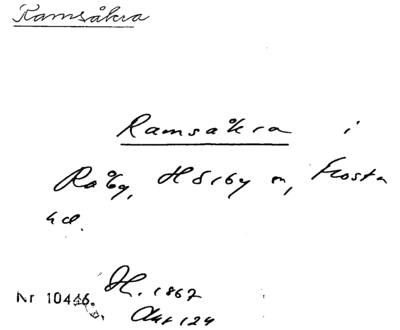 Ramsåkra
Ramsåkra i
Råby, Hörby sn, Frosta
hd.
Nr 10446. H. 1867
Akt 124